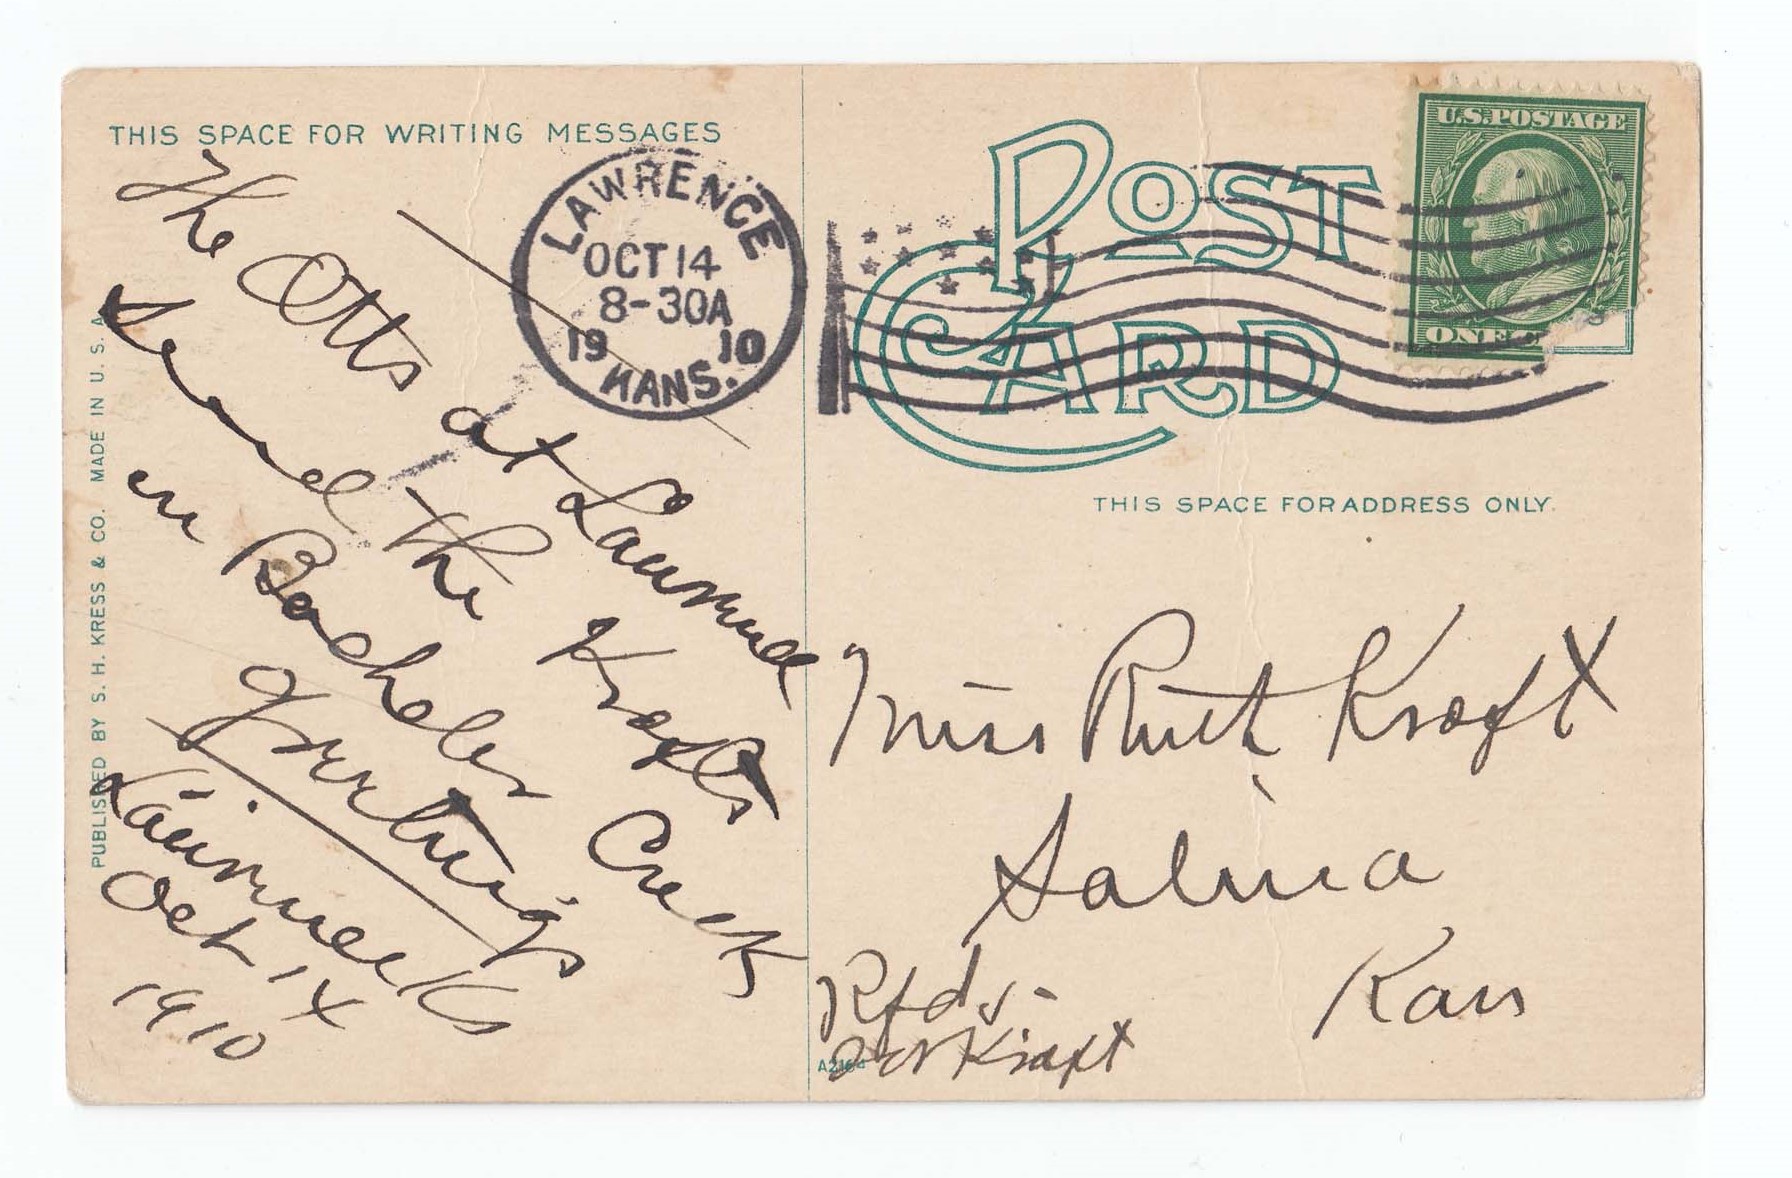 THIS SPACE FOR WRITING MESSAGES
The Otts at Lawrence
Send the Krafts
in Bachelor Creek
Greetings
Lawrence Ks
Oct 14
1910
PUBLISHED BY S. H. KRESS & CO. MADE IN U. S. A.
LAWRENCE
OCT 14
8-30A
19 10
KANS.
POST
CARD
U.S. POSTAGE
ONE
THIS SPACE FOR ADDRESS ONLY.
Miss Ruth Kraft
Salina
Kans
Rfd
Kraft